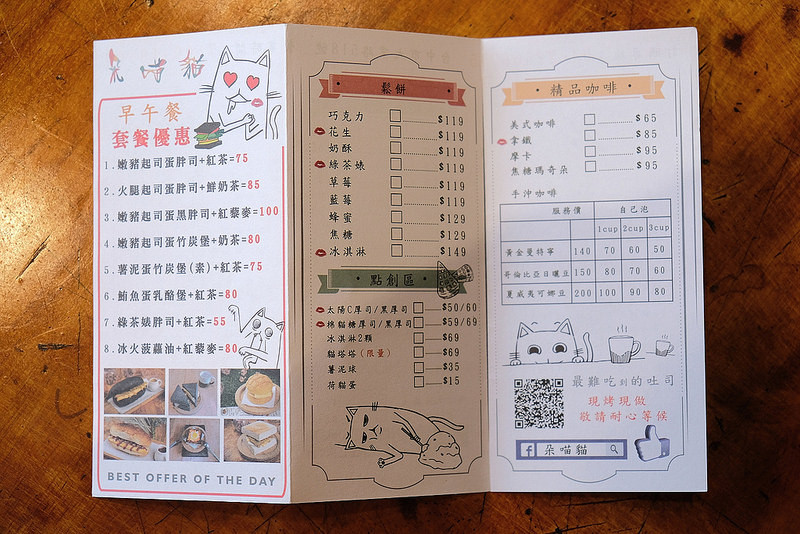 朵喵貓
早午餐
套餐優惠
1.嫩豬起司蛋胖司+紅茶=75
2.火腿起司蛋胖司+鮮奶茶=85
3.嫩豬起司蛋黑胖司+紅藜麥=100
4.嫩豬起司蛋竹炭堡+奶茶=80
5.薯泥蛋竹炭堡(素)+紅茶=75
6.鮪魚蛋乳酪堡+紅茶=80
7.綠茶婊胖司+紅茶=55
8.冰火菠蘿油+紅藜麥=80
BEST OFFER OF THE DAY
鬆餅
巧克力 $119
花生 $119
奶酥 $119
綠茶婊 $119
草莓 $119
藍莓 $119
蜂蜜 $129
焦糖 $129
冰淇淋 $149
點創區
太陽C厚司/黑厚司 $50/60
棉貓糖厚司/黑厚司 $59/69
冰淇淋2顆 $69
貓塔塔(限量) $69
薯泥球 $35
荷貓蛋 $15
精品咖啡
美式咖啡 $65
拿鐵 $85
摩卡 $95
焦糖瑪奇朵 $95
手沖咖啡
服務價 自己泡
1cup 2cup 3cup
黃金曼特寧 140 70 60 50
哥倫比亞日曬豆 150 80 70 60
夏威夷可娜豆 200 100 90 80
最難吃到的吐司
現烤現做
敬請耐心等候
f 朵喵貓